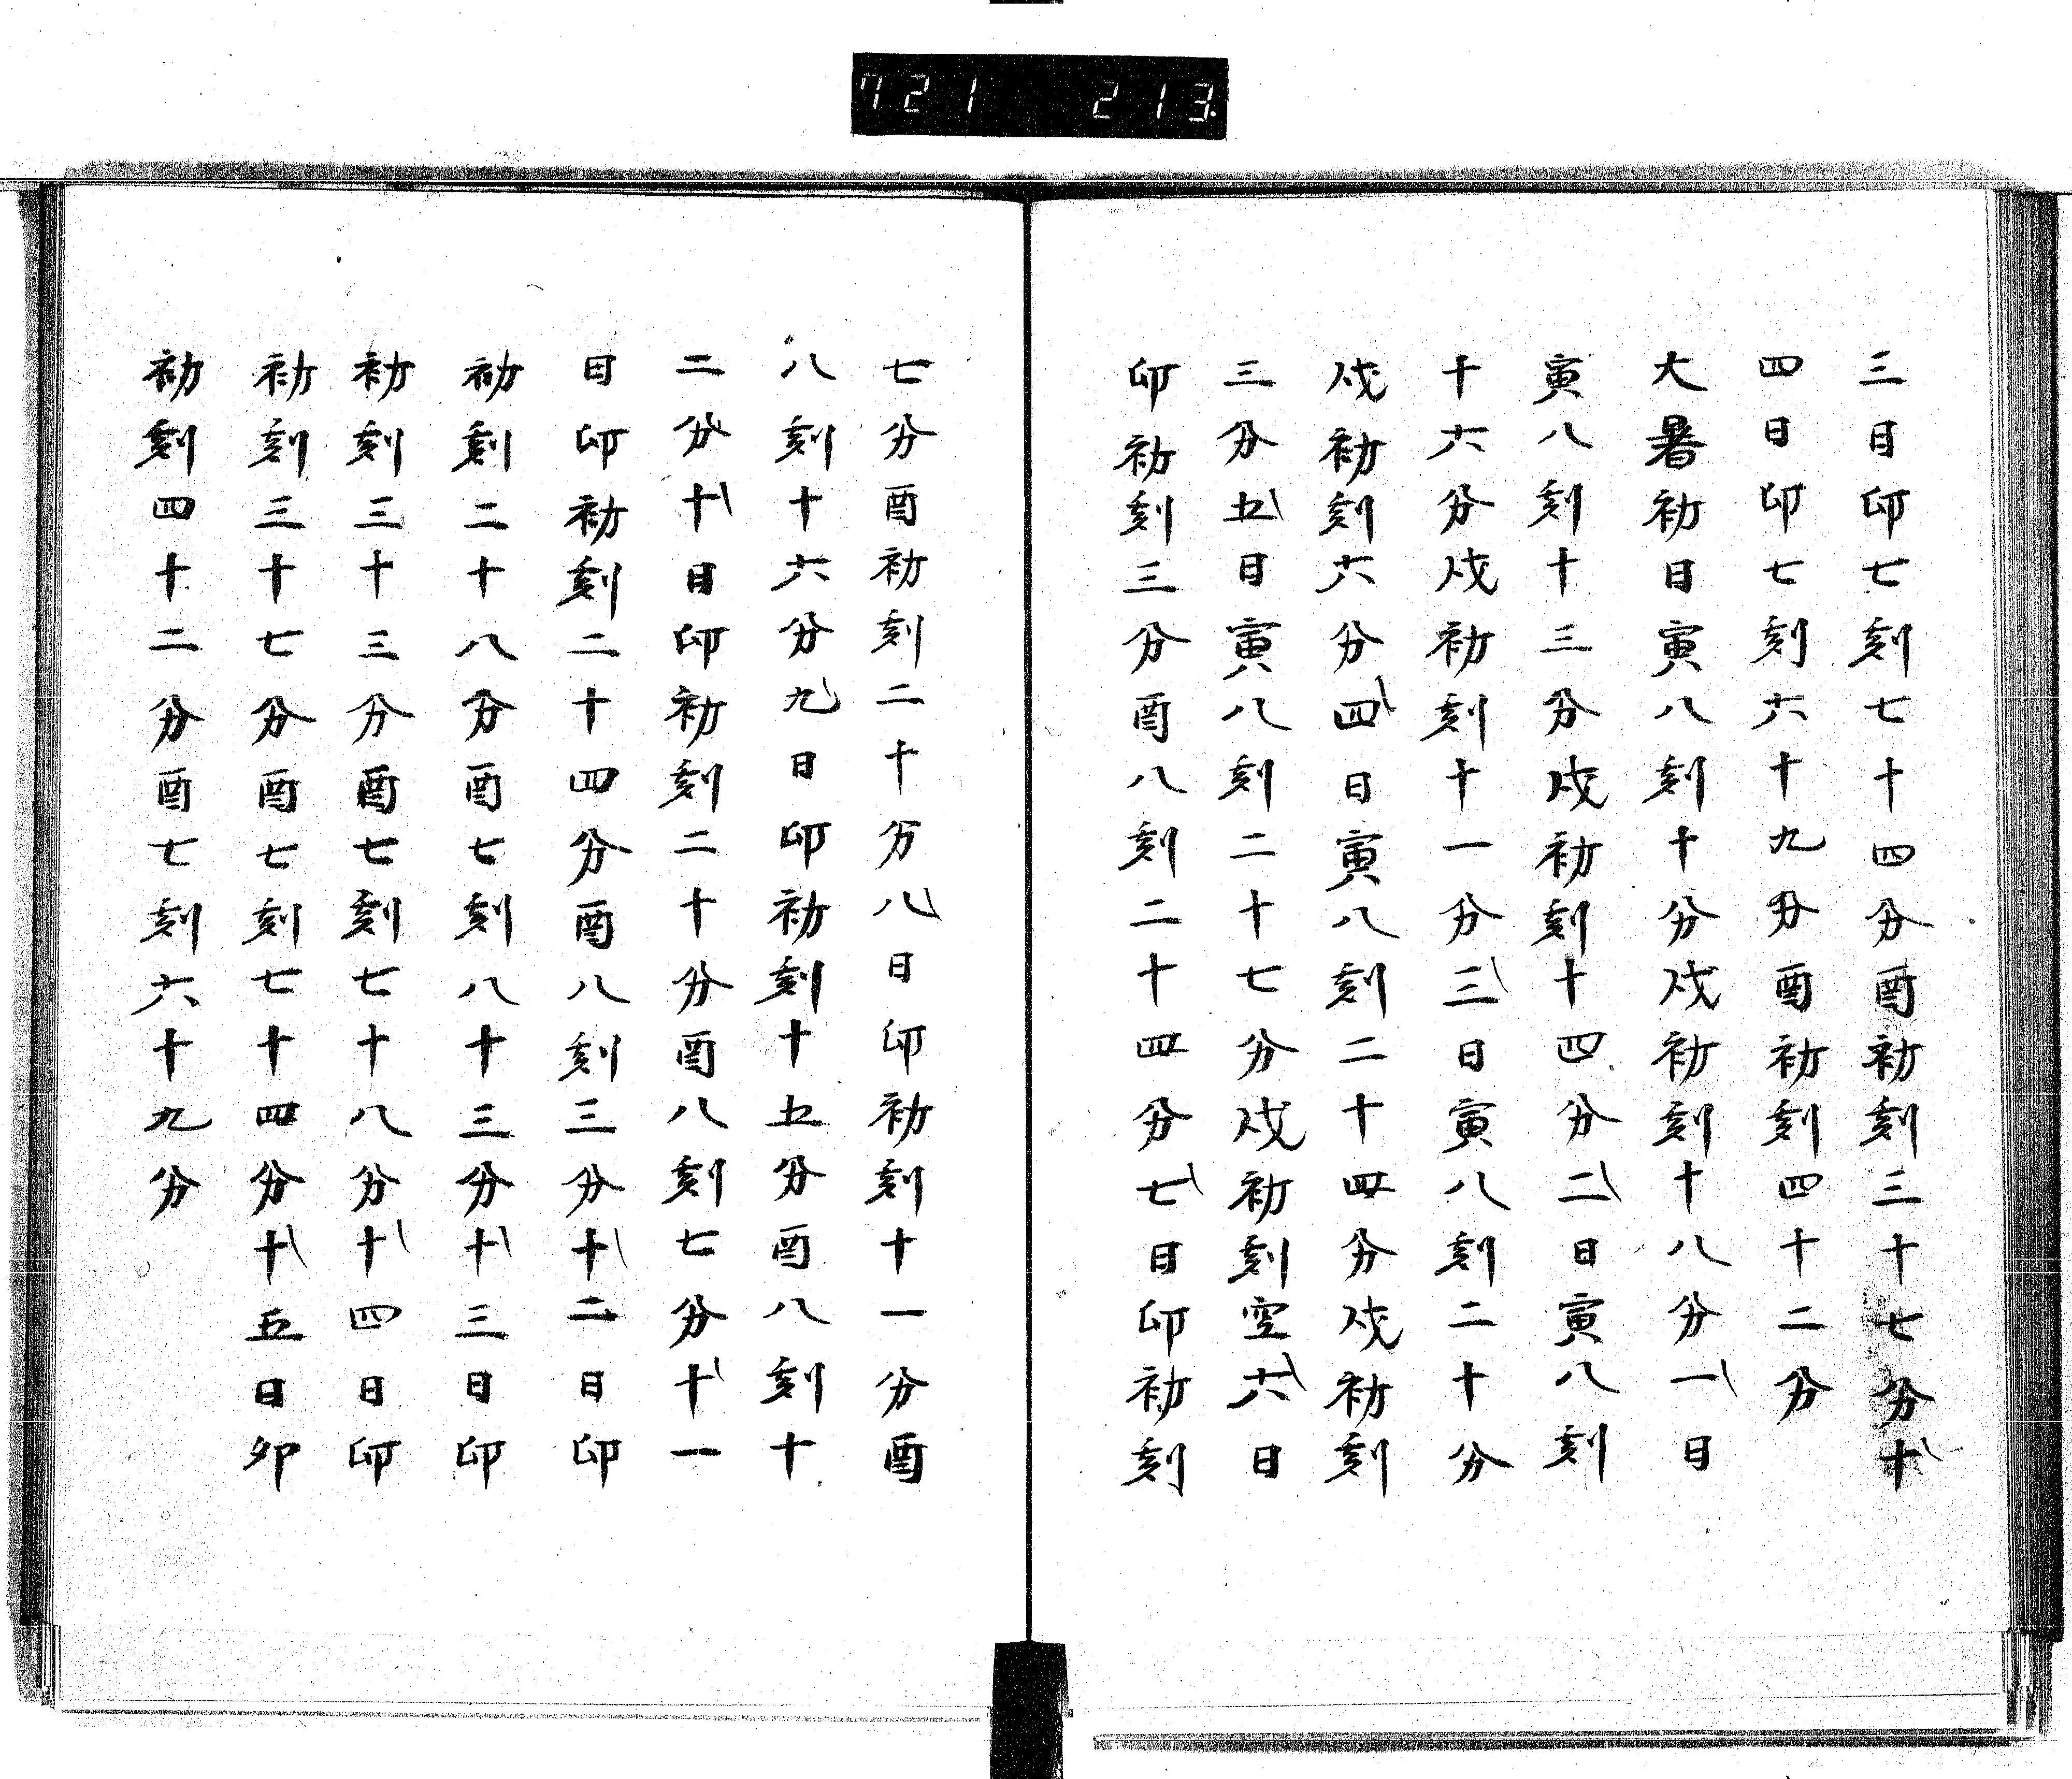 721 213
三日卯七刻七十四分酉初刻三十七分十
四日卯七刻六十九分酉初刻四十二分
大暑初日寅八刻十分戌初刻十八分一日
寅八刻十三分戌初刻十四分二日寅八刻
十六分戌初刻十一分三日寅八刻二十分
戌初刻六分四日寅八刻二十四分戌初刻
三分五日寅八刻二十七分戌初刻空六日
卯初刻三分酉八刻二十四分七日卯初刻
七分酉初刻二十分八日卯初刻十一分酉
八刻十六分九日卯初刻十五分酉八刻十
二分十日卯初刻二十分酉八刻七分十一
日卯初刻二十四分酉八刻三分十二日卯
初刻二十八分酉七刻八十三分十三日卯
初刻三十三分酉七刻七十八分十四日卯
初刻三十七分酉七刻七十四分十五日卯
初刻四十二分酉七刻六十九分